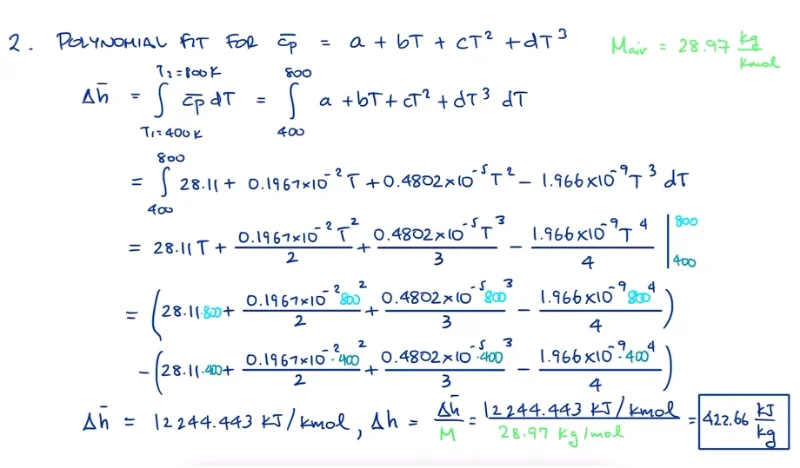 2. POLYNOMIAL FIT FOR c̄p = a + bT + cT² + dT³ Mair = 28.97 kg/kmol
Δh̄ = ∫_{T₁=400K}^{T₂=800K} c̄p dT = ∫_{400}^{800} a + bT + cT² + dT³ dT
= ∫_{400}^{800} 28.11 + 0.1967×10⁻²T + 0.4802×10⁻⁵T² − 1.966×10⁻⁹T³ dT
= 28.11T + 0.1967×10⁻²T²/2 + 0.4802×10⁻⁵T³/3 − 1.966×10⁻⁹T⁴/4 |_{400}^{800}
= (28.11·800 + 0.1967×10⁻²800²/2 + 0.4802×10⁻⁵800³/3 − 1.966×10⁻⁹800⁴/4)
− (28.11·400 + 0.1967×10⁻²·400²/2 + 0.4802×10⁻⁵·400³/3 − 1.966×10⁻⁹·400⁴/4)
Δh̄ = 12244.443 KJ/kmol, Δh = Δh̄/M = 12244.443 KJ/kmol / 28.97 kg/mol = 422.66 KJ/kg